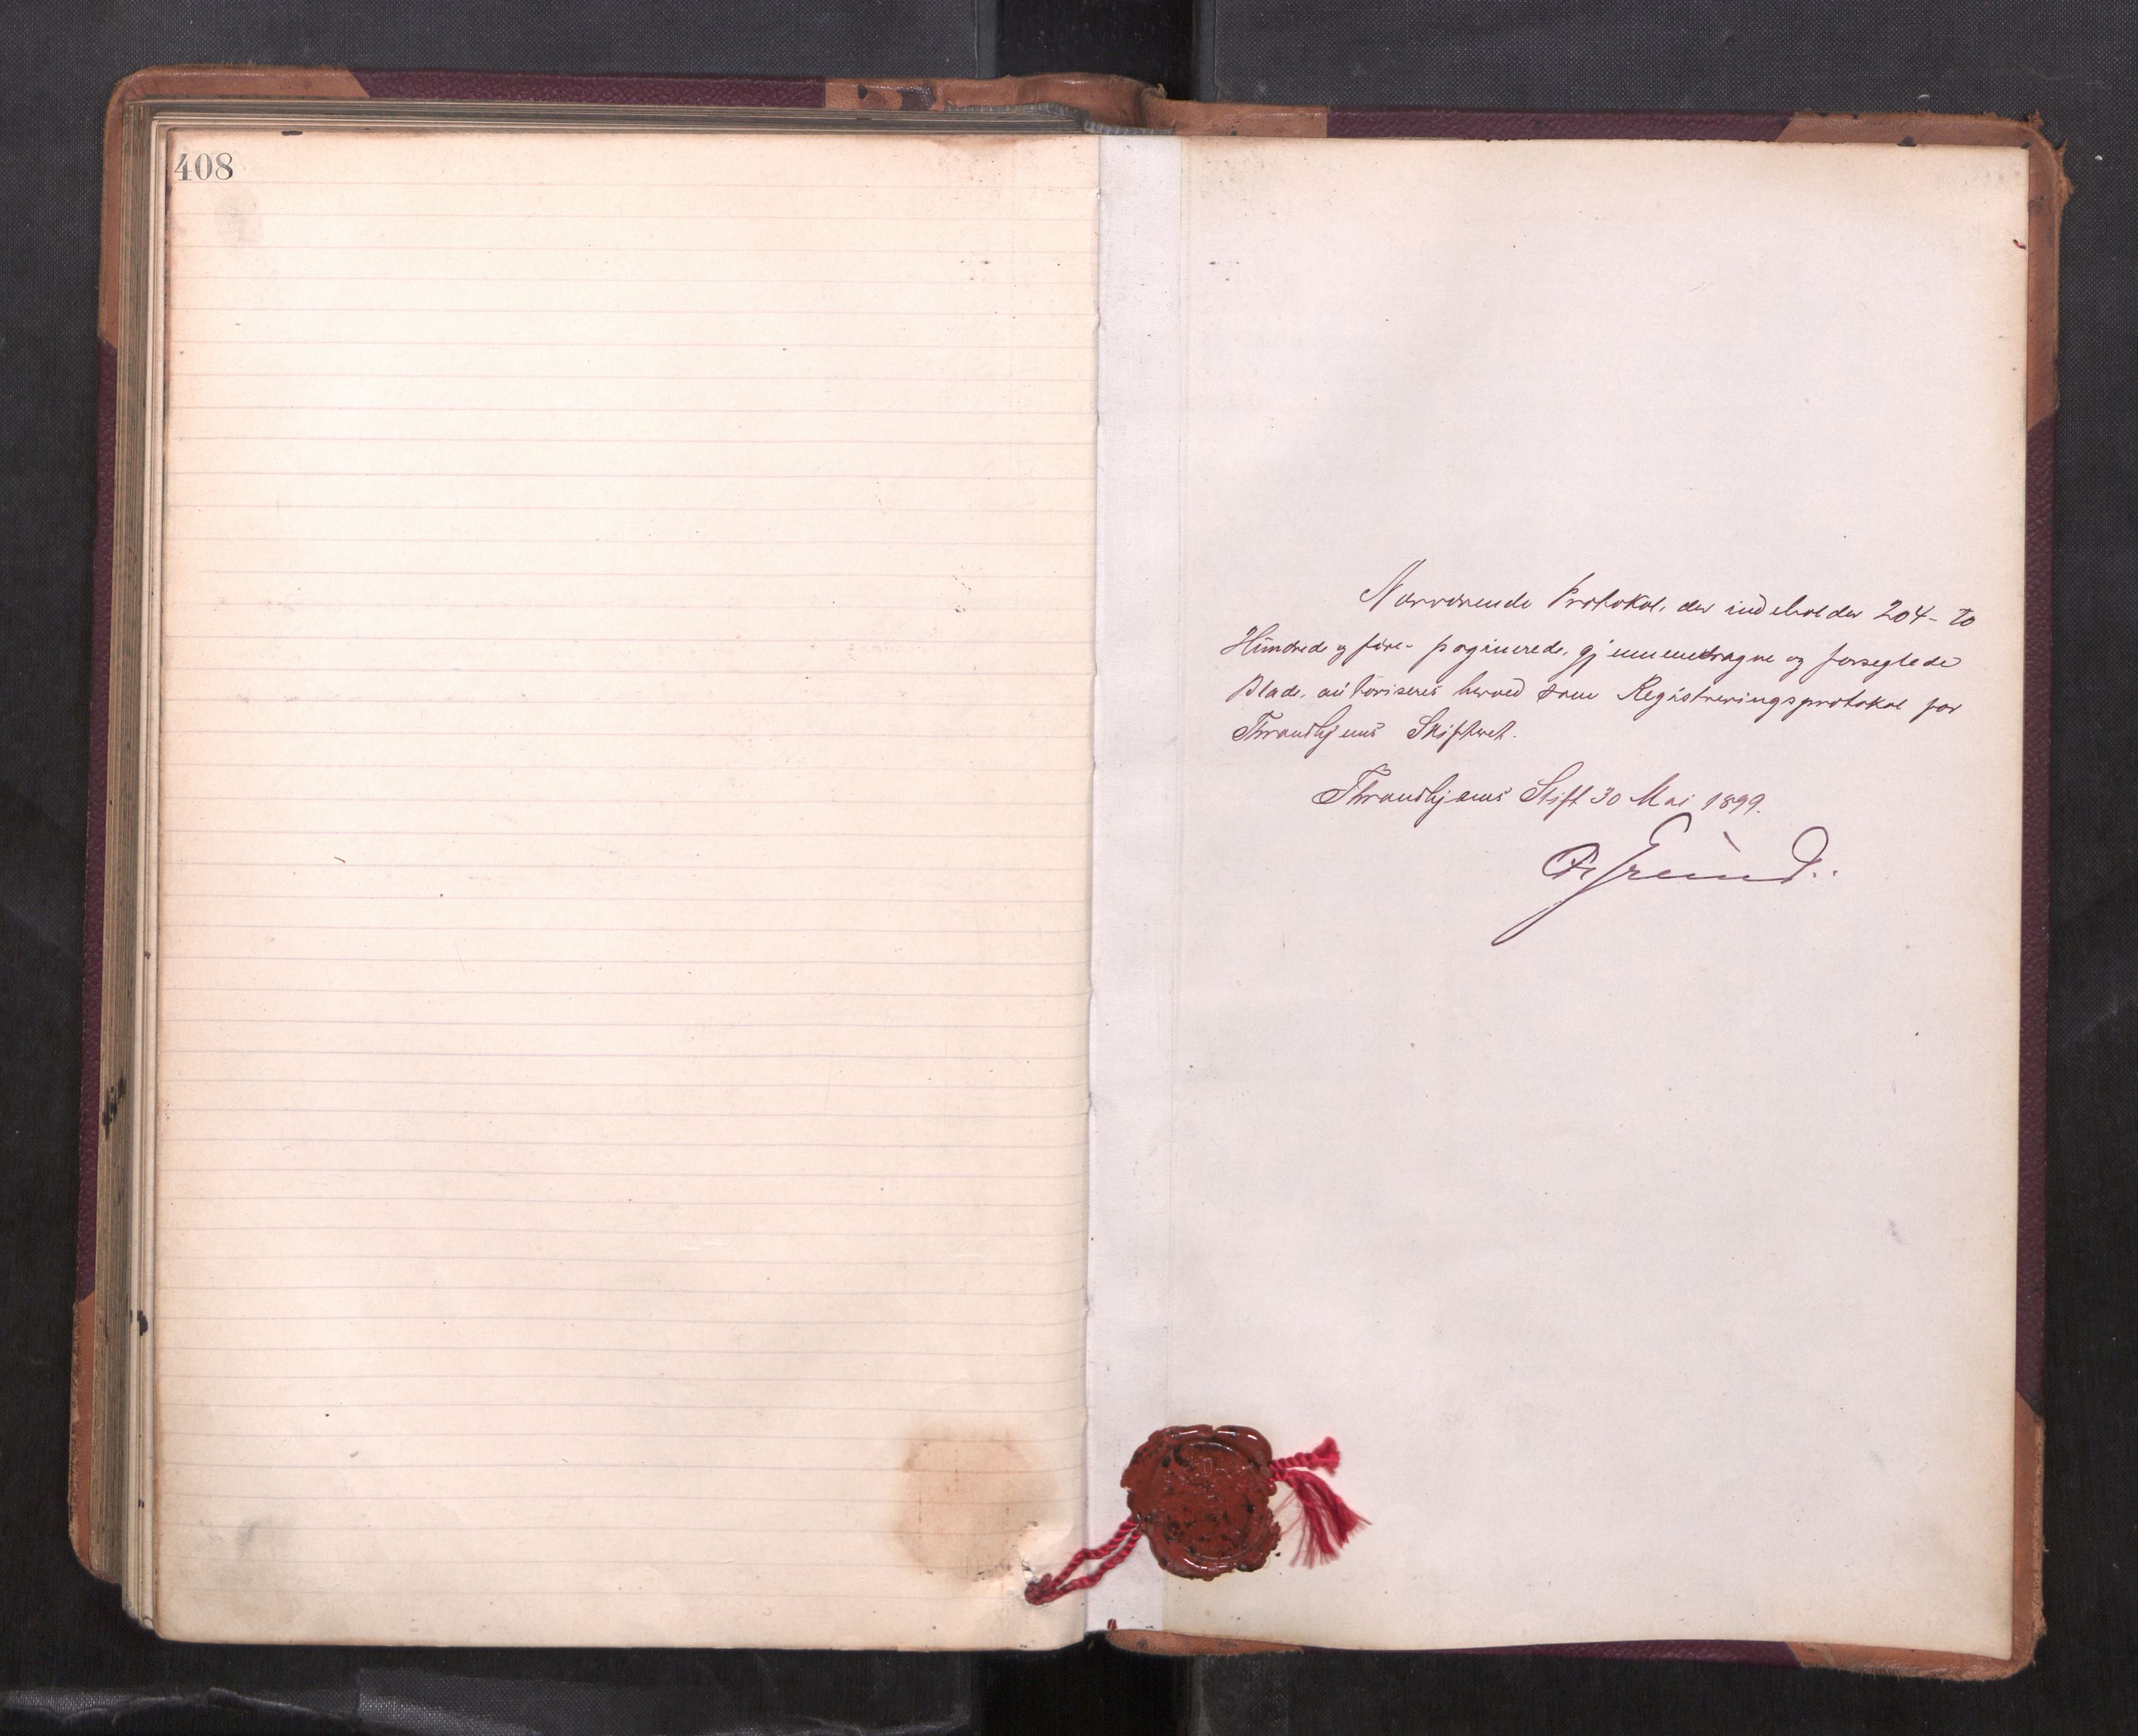 408
Nærværende Protokol, der indeholder 204 - to
Hundrede og fire - paginerede, gjennemdragne og forseglede
Blade, autoriseres herved som Registreringsprotokol for
Throndhjems Skifteret.
Throndhjems Stift 30 Mai 1899.